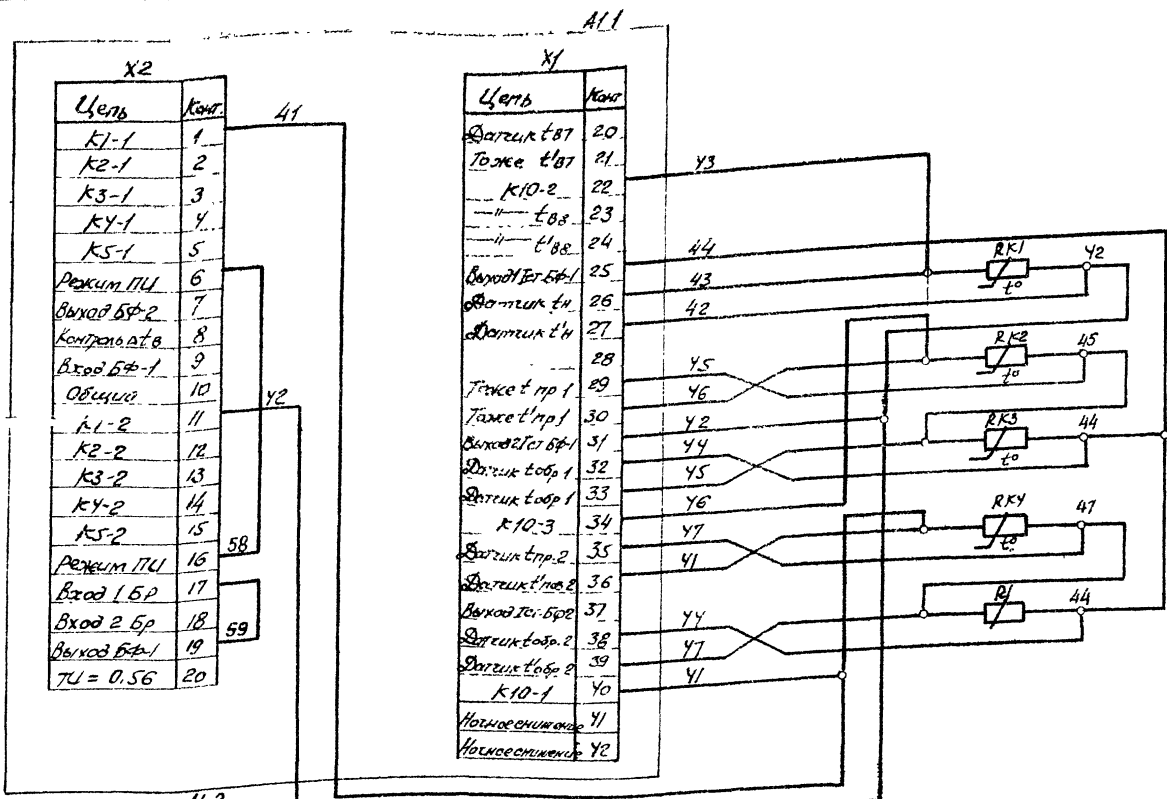 A11
X2
Цепь Конт.
K1-1 1
K2-1 2
K3-1 3
K4-1 4
K5-1 5
Режим ПИ 6
Выход БФ-2 7
Контроль Δtв 8
Вход БФ-1 9
Общий 10
K1-2 11
K2-2 12
K3-2 13
K4-2 14
K5-2 15
Режим ПИ 16
Вход 1 Бр 17
Вход 2 Бр 18
Выход БФ-1 19
TИ = 0.56 20
41
42
58
59
X1
Цепь Конт
Датчик tвт 20
Тоже t'вт 21
K10-2 22
—"— tвв 23
—"— t'вв 24
Выход 1 Iст БФ-1 25
Датчик tн 26
Датчик t'н 27
28
Тоже t пр 1 29
Тоже t' пр 1 30
Выход 2 Iст БФ-1 31
Датчик tобр 1 32
Датчик tобр 1 33
K10-3 34
Датчик tпр.2 35
Датчик 36
Выход БФ2 37
Датчик tобр.2 38
Датчик t'обр 2 39
K10-1 40
Ночное снижение 41
Ночное снижение 42
43
44
43
42
45
46
42
44
45
46
47
41
44
47
41
RK1 42
t°
RK2 45
t°
RK3 44
t°
RK4 47
t°
R1 44